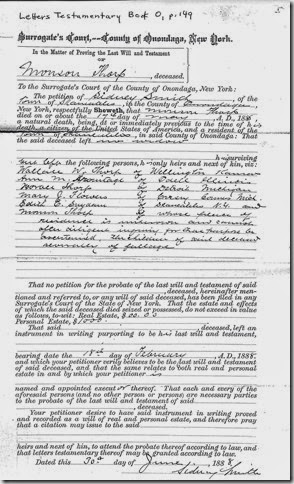 Letters Testamentary Book O, p. 149
5
Surrogate's Court,—County of Onondaga, New York.
In the Matter of Proving the Last Will and Testament
OF
Monson Thorp deceased.
To the Surrogate's Court of the County of Onondaga, New York:
The petition of Sidney Smith of the
town of Skaneateles, in the County of Onondaga,
New York, respectfully Sheweth, that Monson Thorp
died on or about the 17th day of May A.D., 188
a natural death, being, at or immediately previous to the time of his
death a citizen of the United States of America, and a resident of the
town of Skaneateles, in said county of Onondaga: That
the said deceased left no widow
h surviving
the following persons, h only heirs and next of kin, viz:
Wallace W. Thorp of Wellington Kansas
Ann M. of Illinois
Horace Thorp of Detroit Michigan
Mary J. Stowers of Mich
Edith E. of Skaneateles N.Y. and
Monson Thorp whose place of
residence is unknown and cannot
after diligent inquiry for that purpose be
ascertained, the children of said deceased
and all of full age
That no petition for the probate of the last will and testament of said
deceased, hereinafter men-
tioned and referred to, or any will of said deceased, has been filed in any
Surrogate's Court of the State of New York. That the estate and effects
of which the said deceased died seized or possessed, do not exceed in value
as follows, to wit: Real Estate, $
Personal Estate, $1000
That said deceased, left an
instrument in writing purporting to be his last will and testament,
bearing date the 18th day of February A.D., 188
and which your petitioner verily believes to be the last will and testament
of said deceased, and that the same relates to both real and personal
estate and in and by which your petitioner
named and appointed execut or thereof. That each and every of the
aforesaid persons (and no other person or persons) are necessary parties
to the probate of the last will and testament of said
deceased.
Your petitioner desire to have said instrument in writing proved
and recorded as a will of real and personal estate, and therefore pray
that a citation may issue to the said
heirs and next of kin, to attend the probate thereof according to law, and
that letters testamentary may be granted according to law.
Dated this 30th day of June, 188
Sidney Smith